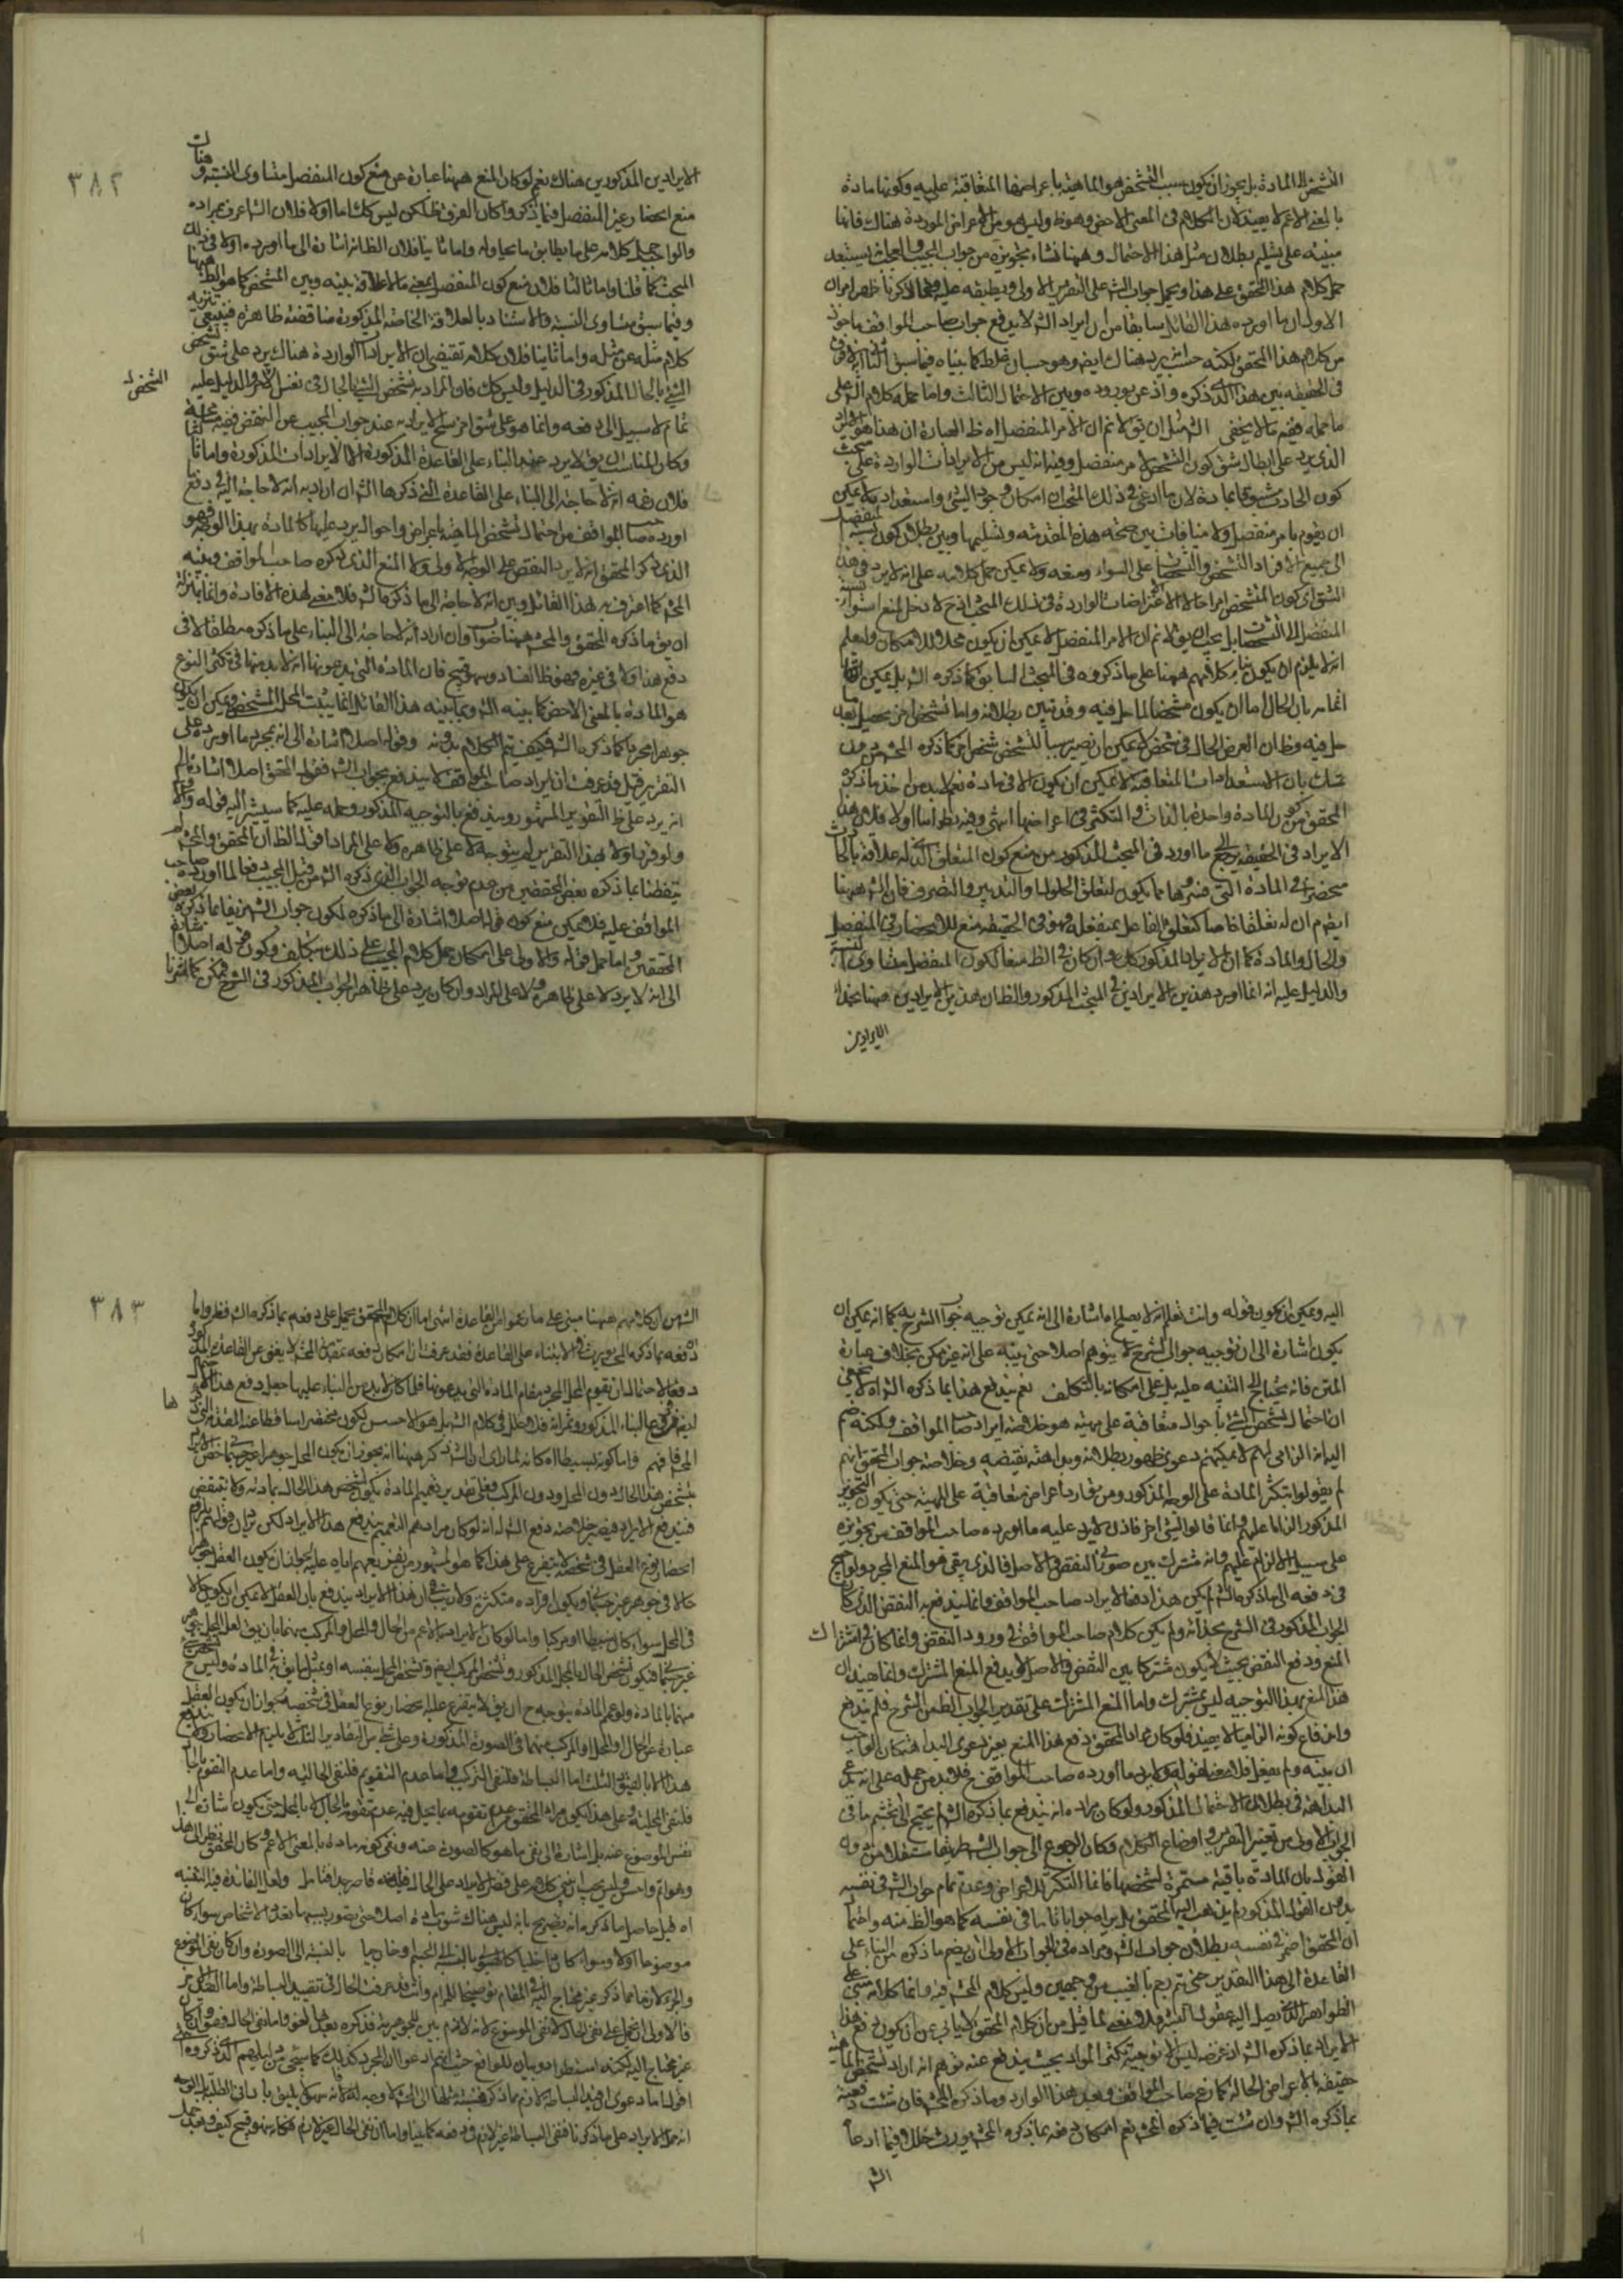 التشخص الى المادة بل يجوز ان يكون سبب التشخص هو الماهية باعراضها المتعاقبة عليه وكونها مادة
بالمعنى الاعم لا يفيد لان الكلام في المعنى الاخص وهو ظ وليس هو من الاعراض الموردة هناك فانها
مبنية على تسليم بطلان مثل هذا الاحتمال وههنا نشاء تجويزه من جواب المجيب
حمل كلام هذا المحقق على هذا ويحمل جواب الش على التقرير الاولى ويطبقه عليه
الاول ان ما اورده هذا القائل سابقا من ان ايراد الش لا يدفع جواب صاحب المواقف ماخوذ
من كلام هذا المحقق لكنه حيث يرد هناك ايض وهو حسبان غلط كما بيناه فيما سبق
في الحقيقة بين هذا الذي ذكره واذعن بوروده وبين الاحتمال الثالث واما حمله كلام الش على
ما حمله ففيه ما لا يخفى الش مثل ان يق لا نم ان الامر المنفصل اه ظ العبارة ان هذا هو
الذي يرد على ابطال شق كون التشخص لامر منفصل وفيه انه ليس من الايرادات الواردة على مبحث
كون الحادث مسبوقا بمادة لان ما ادعى في ذلك المبحث ان امكان وجود الشيء واستعداده لا يمكن
ان يقوم بامر منفصل ولا منافات بين صحة هذه المقدمة وتسليمها وبين بطلان كون نسبة المنفصل
الى جميع الافراد التشخص والتشخصات على السواء ومنعه ولا يمكن حمل كلامه على انه لا يرد في هذا
الشق اي كون المتشخص امرا حالا الاعتراضات الواردة في ذلك المبحث اذ ح لا دخل لمنع استواء نسبة
المنفصل الى التشخصات بل يجب ان يق لا نم ان الامر المنفصل لا يمكن ان يكون محلا للامكان وليعلم
انه لا يلزم ان يكون بناء كلامهم ههنا على ما ذكروه في المبحث السابق كما ذكره الش بل يمكن
اتمامه بان الحال اما ان يكون متشخصا لما حل فيه وقد تبين بطلانه واما تشخص اخر يحصل بعد ما
حل فيه وظ ان العرض الحال في شخص لا يمكن ان يصير سببا لتشخص شخص اخر كما ذكره المحشي من دون
تمسك بان الاستعدادات المتعاقبة لا يمكن ان يكون الا في مادة نعم لا بد من اخذ ما ذكره
المحقق من كون المادة واحدة بالذات والتكثر في اعراضها انتهى وفيه نظر اما اولا فلان هذا
الايراد في الحقيقة يرجع الى ما اورد في المبحث المذكور من منع كون المتعلق الذي له علاقة بالحادث
منحصرا في المادة التي فسروها بما يكون لتعلق الحلول او التدبير والتصرف فان الش ههنا
ايض يقوم ان له تعلقا خاصا كتعلق الفاعل بمنفعله وهو في الحقيقة منع للانحصار في المنفصل
والحال والمادة كما ان الايراد المذكور كك وان كان في الظ منعا لكون المنفصل متساوي النسبة
والدليل عليه انه انما اورد هذين الايرادين في المبحث المذكور والظ ان هذين الايرادين ههنا
الايرادين
٣٨٢
الايرادين المذكورين هناك نعم لو كان المنع ههنا عبارة عن منع كون المنفصل متساوي النسبة وهناك
منع انحصار غير المنفصل فيما ذكر واكان الفرق ظ لكن ليس كك اما اولا فلان الش اعرف بمراده
والواجب حمل كلامه على ما يطابق ما يحاوله واما ثانيا فلان الظ انه اشارة الى ما اورده اولا في ذلك
المبحث كما قلنا واما ثالثا فلان منع كون المنفصل بمعنى ما لا علاقة بينه وبين المتشخص كما هو الظ ههنا
وفيما سبق متساوي النسبة والاستناد بالعلاقة الخاصة المذكورة مناقضة ظاهرة فينبغي تنزيه
كلام مثله عن مثله واما ثانيا فلان كلامه تقتضي ان الايرادات الواردة هناك يرد على شق تشخص
الشيء بالحال المذكور في الدليل وليس كك فان المراد به تشخص الشيء بالحال في نفس الامر والدليل عليه
تمام لا سبيل الى دفعه وانما هو على شق اخر سلح الايراد به عند جواب المجيب عن النقض
وكان المناسب ان يق لا يرد عليه بالبناء على القاعدة المذكورة الا الايرادات المذكورة واما ثالثا
فلان زعمه انه لا حاجة الى البناء على القاعدة التي ذكرها الش ان اراد به انه لا حاجة اليه في دفع
اورده صاحب المواقف من احتمال تشخص الماهية باعراض واحوال يرد عليها كالمادة بهذا الوجه فهو
الذي ذكر المحقق انه لا يرد النقض على الوجه الاولى ولا المنع الذي ذكره صاحب المواقف وبينه
المحشي كما اعترف به هذا القائل وبين انه لا حاجة الى ما ذكره الش فلا معنى لهذه الافادة وانما
ان يق ما ذكره المحقق والمحشي ههنا صواب وان اراد انه لا حاجة الى البناء على ما ذكره مطلقا لا في
دفع هذا ولا في غيره فهو ظ الفساد وسهو قبيح فان المادة التي يدعونها انه لا بد منها في تكثر النوع
هو المادة بالمعنى الاخص كما بينه الش وبما بينه هذا القائل انما يثبت المحل المتشخص ويمكن ان يكون
جوهرا مجردا كما ذكره الش فكيف يتم الكلام بدونه وقوله اصلا اشارة الى انه بمجرد ما اورده على
التقرير قيل قد عرفت ان ايراد صاحب المواقف لا يندفع بجواب الش فقول المحقق اصلا اشارة الى
انه يرد على ظ التقرير المشهور ويندفع بالتوجيه المذكور وحمله عليه كما سيشير اليه قوله
ولو قرر اولا بهذا التقرير لم يتوجه لا على ظاهره ولا على المراد اقول الظ ان المحقق والمحشي لم
يتفطنا بما ذكره بعض المحققين من عدم توجه الجواب الذي ذكره الش من قبل المجيب دفعا لما اورده صاحب
المواقف عليه فلا يمكن منع كون قوله اصلا اشارة الى ما ذكره لكون جواب الش مزيفا بما ذكره بعض
المحققين واما حمل قوله والاولى على امكان حمل كلام المجيب على ذلك بتكلف وكون
الى انه لا يرد لا على ظاهره ولا على المراد وان كان يرد على ظاهر الجواب المذكور في الشرح فممكن كما اشرنا
التشخص
اليه ويمكن ان يكون قوله وانت تعلم انه لا يصلح اه اشارة الى انه يمكن توجيه جواب الشرح به كما انه يمكن ان
يكون اشارة الى ان توجيه جواب الشرح لا يتوهم اصلا حتى ينبه على انه غير ممكن بخلاف عبارة
المتن فانه يحتاج الى التنبيه عليه بل على امكانه بالتكلف نعم يندفع هذا بما ذكره الش اه لا يخفى
ان احتمال تشخص الشيء باحوال متعاقبة على هويته هو خلاصة ايراد صاحب المواقف ولكنه ضم
اليه انه الزامي لهم لا يمكنهم دعوى ظهور بطلانه وبداهة نقيضه وخلاصة جواب المحقق انهم
لم يقولوا بتكثر المادة على الوجه المذكور ومن توارد اعراض متعاقبة على الماهية حتى يكون التجويز
المذكور الزاما عليهم وانما قالوا لشيء اخر فاذن لا يرد عليه ما اورده صاحب المواقف من تجويزه
على سبيل الالزام عليهم وانه مشترك بين صورتي النقض والاصل فالذي بقي هو المنع المجرد ولو احتيج
في دفعه الى ما ذكره الش لم يكن هذا دفعا لايراد صاحب المواقف وانما يندفع به النقض الذي كان
الجواب المذكور في الشرح بحذائه ولم يكن كلام صاحب المواقف في ورود النقض وانما كان في اشتراك
المنع ودفع النقض بحيث لا يكون مشتركا بين النقض والاصل لا يدفع المنع المشترك وانما يفيد ان
هذا المنع بهذا التوجيه ليس بمشترك واما المنع المشترك على تقدير الجواب الظ من الشرح فلم يندفع
واندفاع كونه الزاميا لا يفيد فلو كان مراد المحقق دفع هذا المنع بغير دعوى البداهة لكان الواجب
ان يبينه ولم يفعل فلا معنى لقوله ولا يرد ما اورده صاحب المواقف ح فلا بد من حمله على انه يدعي
البداهة في بطلان الاحتمال المذكور ولو كان مراده انه يندفع بما ذكره الش لم يحتج الى تجشم ما في
الجواب الاول من تغيير التقرير واوضاع الكلام وكان الرجوع الى جواب الش طريقا مستقلا من دون
القول بان المادة باقية مستمرة لشخصها فانما التكثر للاعراض وعدم تمام جواب الش في نفسه
بدون القول المذكور لم يذهب اليه المحقق بل يراه جوابا ثانيا في نفسه كما هو الظ منه واحتمال
ان المحقق اضمر في نفسه بطلان جواب الش ومراده في الجواب الاولى ان يضم ما ذكره من البناء على
القاعدة الى هذا التقدير حتى يتم رجم بالغيب من وجهين وليس كلام المحشي فيه وانما كلامه مبني على
الظواهر الذي يصل اليه عقول البشر فلا معنى لما قيل من ان كلام المحقق لا يتابى عن ان يكون دفع هذا
الايراد بما ذكره الش اذ غرضه ليس الا توجيه تكثر المواد بحيث يندفع عنه توهم انه اراد تشخص الماهية
حقيقة بالاعراض الحالة كما زعم صاحب المواقف وبعد هذا الوارد وما ذكره المحشي فان شئت دفعته
بما ذكره الش وان شئت فيما ذكره المحشي نعم امكان دفعه بما ذكره المحشي يورث خللا فيما ادعاه
الش
٣٨٣
الش من ان كلامهم ههنا مبني على ما زعموا من القاعدة انتهى اما ان كلام المحقق يحمل على دفعه بما ذكره الش فظ واما
دفعه بما ذكره المحشي ويورث الابتناء على القاعدة فقد عرفت ان امكان دفعه بمقدمة المحشي لا يغني عن القاعدة المذكورة
دفعا لاحتمال ان يقوم المحل المجرد مقام المادة التي يدعونها فلما كان لا بد من البناء عليها جعل دفع هذا الاحتمال
ها
المجرد فافهم واما كونه بسيطا اه كانه لما راى ان الش ذكر ههنا انه يجوز ان يكون المحل جوهرا غير جسماني
بتشخص هذا الحال دون المحل ودون المركب فعلى تقدير تعميم المادة يكون تشخص هذا الحال بمادته ولا ينتقض
فيندفع الايراد فيصير خلاصة دفع الش له انه لو كان مرادهم التعميم يندفع هذا الايراد لكن يرد ان قولهم يلزم
انحصار نوع العقل في شخصه لا يتفرع على هذا كما هو المشهور من تفريعهم اياه عليه لجواز ان يكون العقل جوهرا
حالا في جوهر غير جسماني ويكون افراده متكثرة ولا ريب في ان هذا الايراد يندفع بان العقل لا يمكن ان يكون حالا
في المحل سواء كان بسيطا او مركبا واما لو كان الايراد بالاعم من الحال والمحل والمركب منهما بان يق لعل المحل جوهر
غير جسماني فيكون تشخص الحال بالمحل المذكور وتشخص المركب ايض وتشخص المحل بنفسه او بمثل ما يق في المادة وليس ح
منها بالمادة ولو عمم المادة يتوجه ح ان يق لا يتفرع عليه انحصار نوع العقل في شخصه لجواز ان يكون العقل
عبارة عن الحال او المحل او المركب منهما في الصورة المذكورة وعلى شيء من التقادير الثلث لا يلزم الانحصار ولا يندفع
هذا الا بالمقدمات الثلث اما البساطة فلنفي التركيب واما عدم التقويم فلنفي الحالية واما عدم التقوم بالحال
فلنفي المحلية وعلى هذا يكون مراد المحقق عدم تقومه بما يحل فيه عدم تقومه بالحال لا بالمحل حتى يكون اشارة الى
نفس الموضوع عنه بل اشارة الى نفي ما هو كالصورة عنه ونفي كونه مادة بالمعنى الاعم وكان المحقق نظر الى هذا
وهو اتم واحسن وليس بحيث ان يبني كلامهم على قصر الايراد على الحال فانه قاصر جدا فتامل ولعل الفائدة فيه التنبيه
اه قيل حاصل ما ذكره انه تصريح بانه ليس هناك شوب مادة اصلا حتى يتصور بسببها تعدد الاشخاص سواء كان
موضوعا اولا وسواء كان داخليا كالهيولى بالنسبة الى الجسم او خارجيا بالنسبة الى الصورة وان كان نفي الموضوع
والجزء لازما مما ذكر غير محتاج اليه في المقام توضيحا للمرام وانت قد عرفت الحال في تقييد البساطة واما
فالاولى ان يحمل على نفي الحال لا نفي الموضوع لانه لازم بين للجوهرية فذكره بعدها لغو واما نفي الحال فهو وان كان
غير محتاج اليه لكنه استطراد وبيان للواقع حيث انهم ادعوا ان المجرد كذلك كما سيجيء من دليلهم الذي ذكروه
اقول اما دعوى ان قيد البساطة لازم بما ذكره فنسبتها الى المحشي لا وجه له لانه سهو لا يليق باداني الطلبة
انه حمل الايراد على ما ذكرنا فنفي البساطة غير لازم ودفعه كما بينا واما ان نفي الحال غير لازم فكانه سهو قبيح كيف